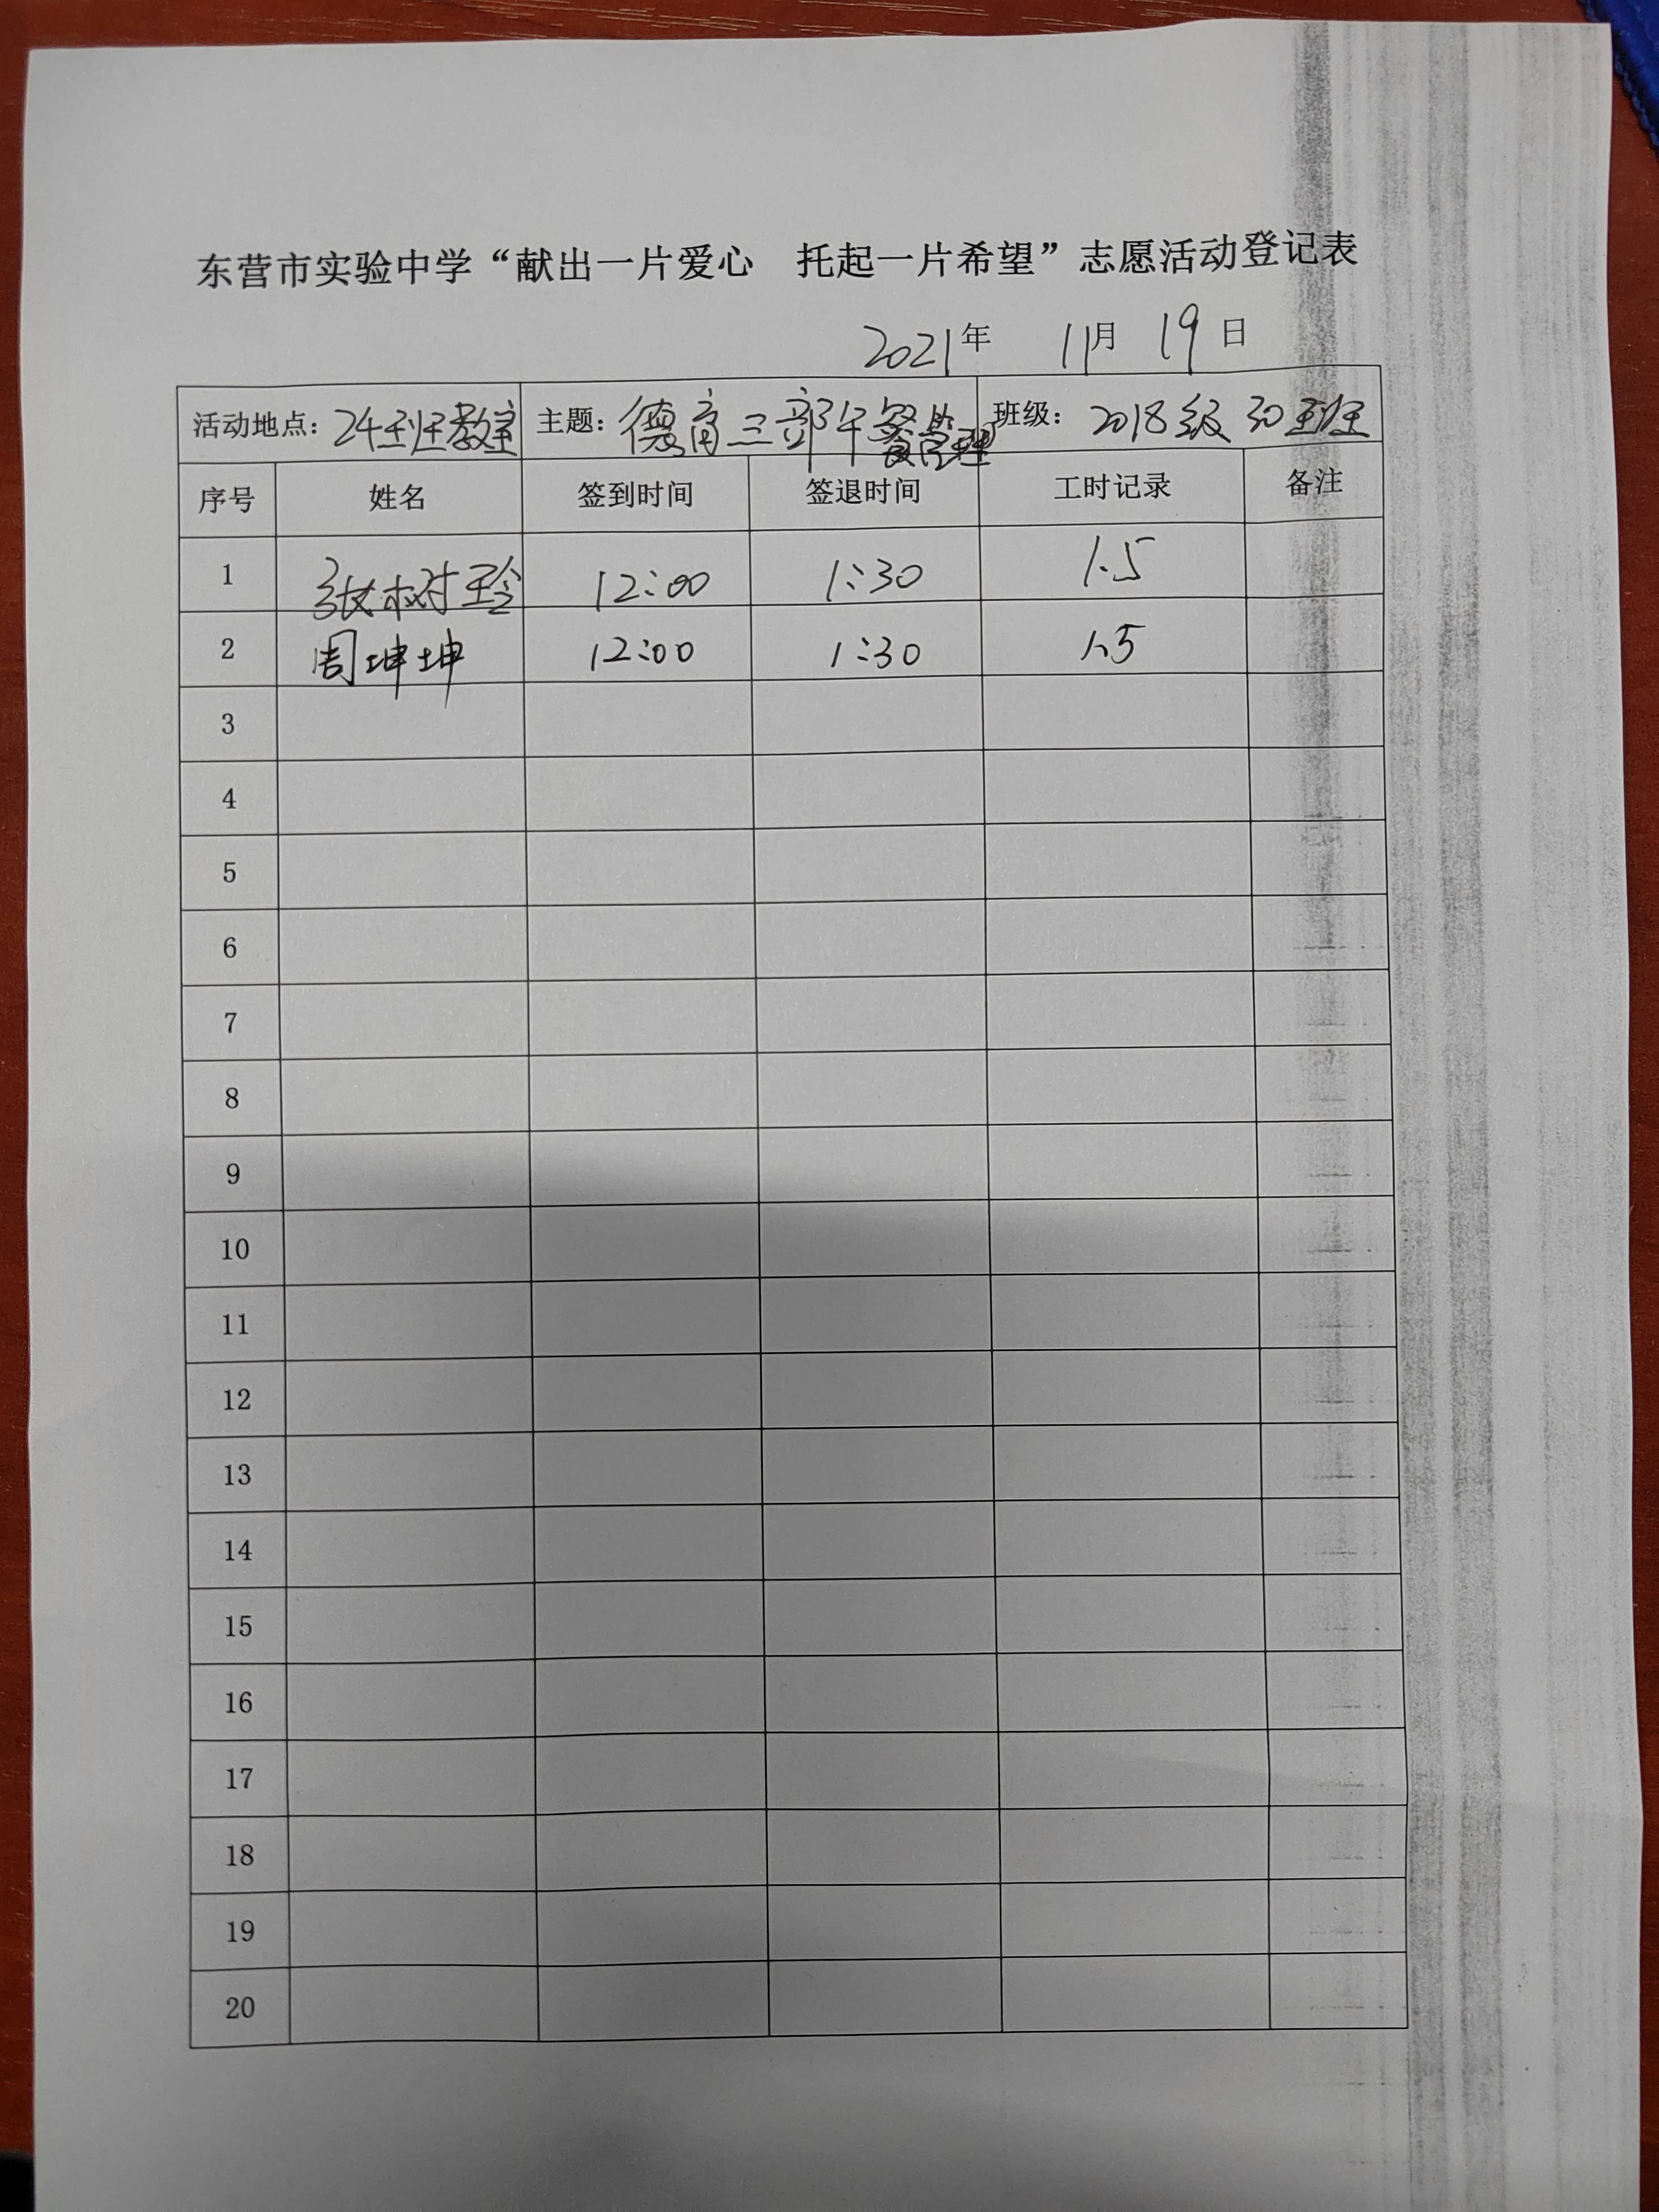 东营市实验中学“献出一片爱心 托起一片希望”志愿活动登记表
2021年 11月 19日
活动地点：24班教室 主题：德育三部午餐管理 班级：2018级30班
序号 姓名 签到时间 签退时间 工时记录 备注
1 张树玲 12:00 1:30 1.5
2 周坤坤 12:00 1:30 1.5
3
4
5
6
7
8
9
10
11
12
13
14
15
16
17
18
19
20